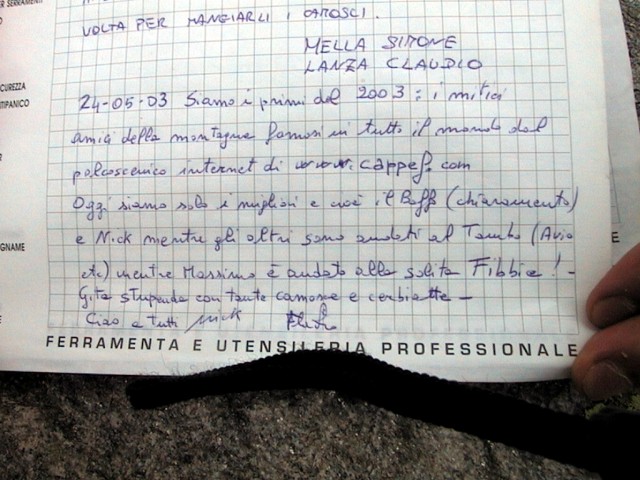 VOLTA PER MANGIARLI I CAMOSCI.
MELLA SIMONE
LANZA CLAUDIO
24-05-03 Siamo i primi del 2003: i mitici
amici della montagna famosi in tutto il mondo dal
palcoscenico internet di www.cappef.com
Oggi siamo solo i migliori e cioè il Boffa (chiaramente)
e Nick mentre gli altri sono andati al Tambo (Avio
etc) mentre Massimo è andato alla solita Fibbia! -
Gita stupenda con tante camosce e cerbiatte -
Ciao a tutti Nick
FERRAMENTA E UTENSILERIA PROFESSIONALE
CUREZZA
TIPANICO
GNAME
E